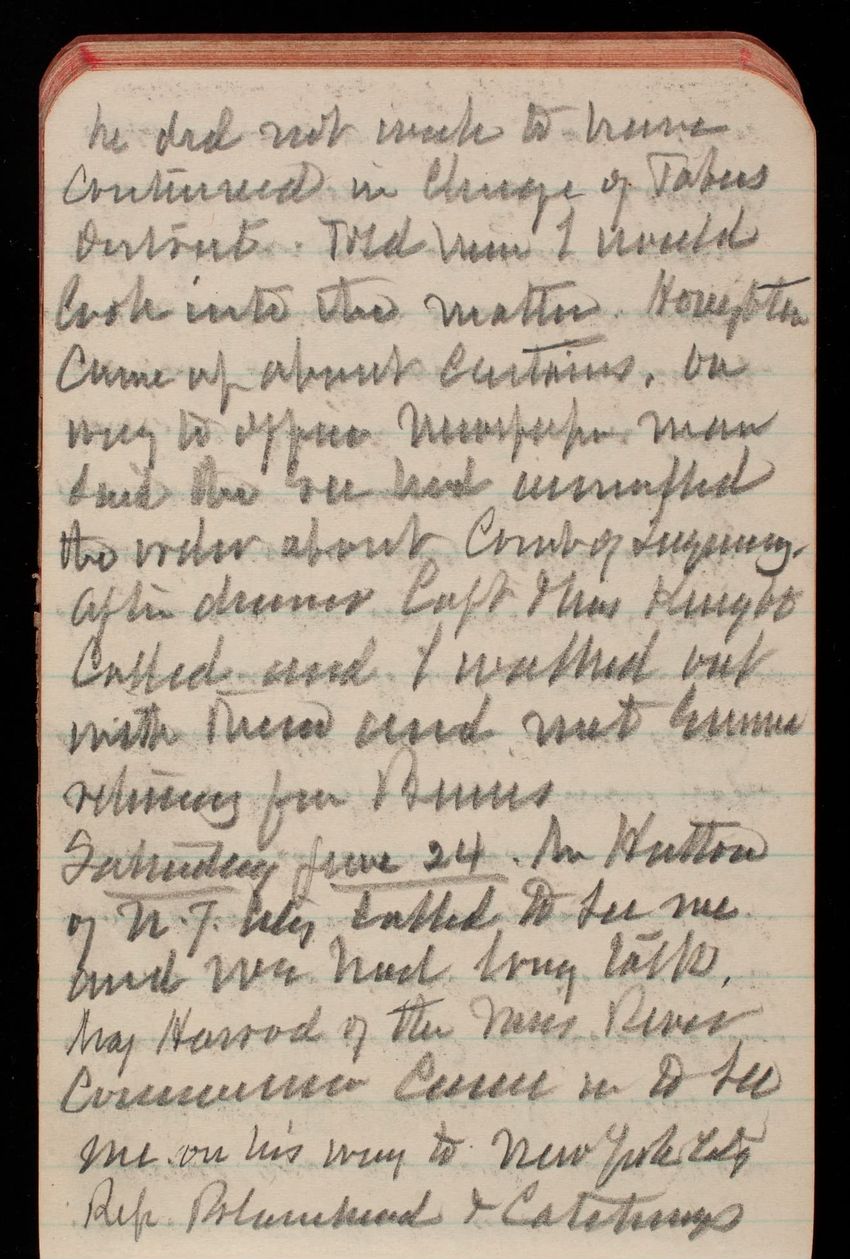 he did not wish to have
continued in charge of Tabers
District. Told him I would
look into the matter. Houghton
came up about Curtains. On
way to office newspaper man
said the Sec had
the order about Court of Inquiry.
After dinner Capt & Mrs Knight
called and I walked out
with them and met
returning from
Saturday June 24. Mr Hutton
of N.Y. City called to see me
and we had long talk.
Maj Harrod of the Miss River
Commission came in to see
me on his way to New York City
Rep. & Catchings